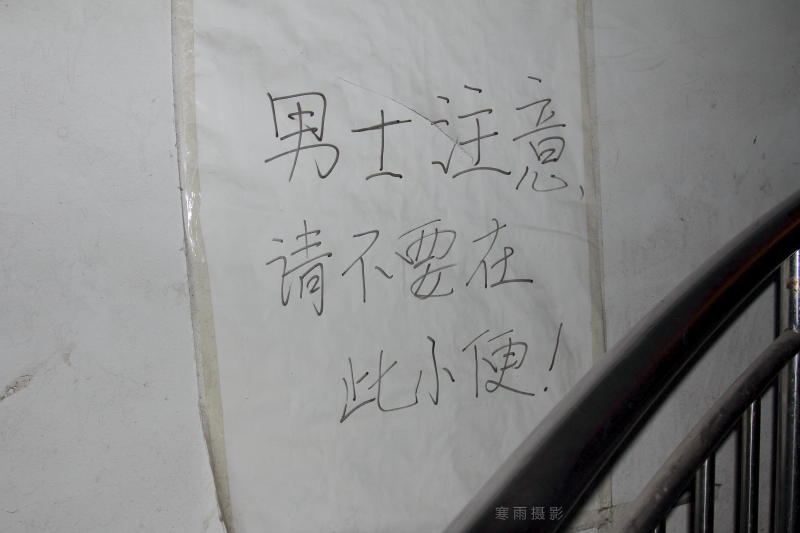 男士注意、
请不要在
此小便!
寒雨摄影